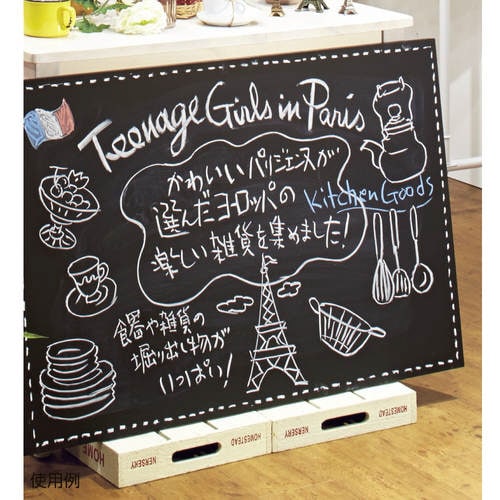 Teenage Girls in Paris
かわいいパリジェンヌが
選んだヨーロッパの
楽しい雑貨を集めました!
Kitchen Goods
食器や雑貨の
堀り出し物が
いっぱい!
HOME
NERSERY
HOMESTEAD
NERSERY
HOMESTEAD
使用例